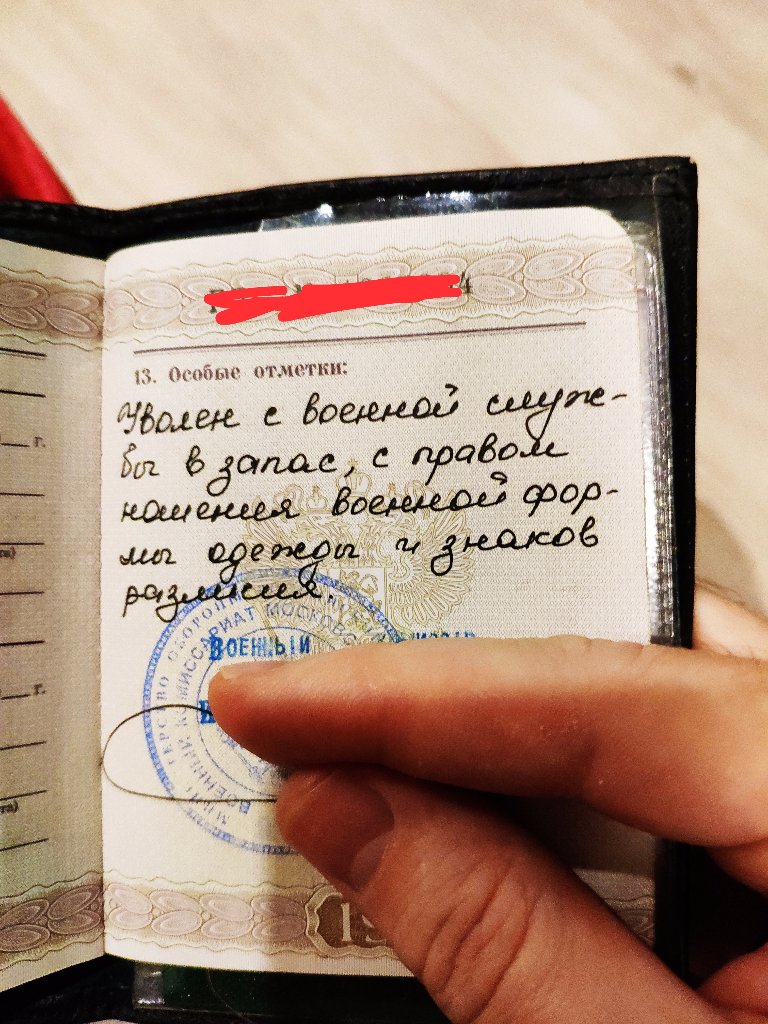 13. Особые отметки:
Уволен с военной служ-
бы в запас, с правом
ношения военной фор-
мы одежды и знаков
различия.
ВОЕННЫЙ
ВОЕННЫЙ КОМИССАРИАТ МОСКОВС
г.
г.